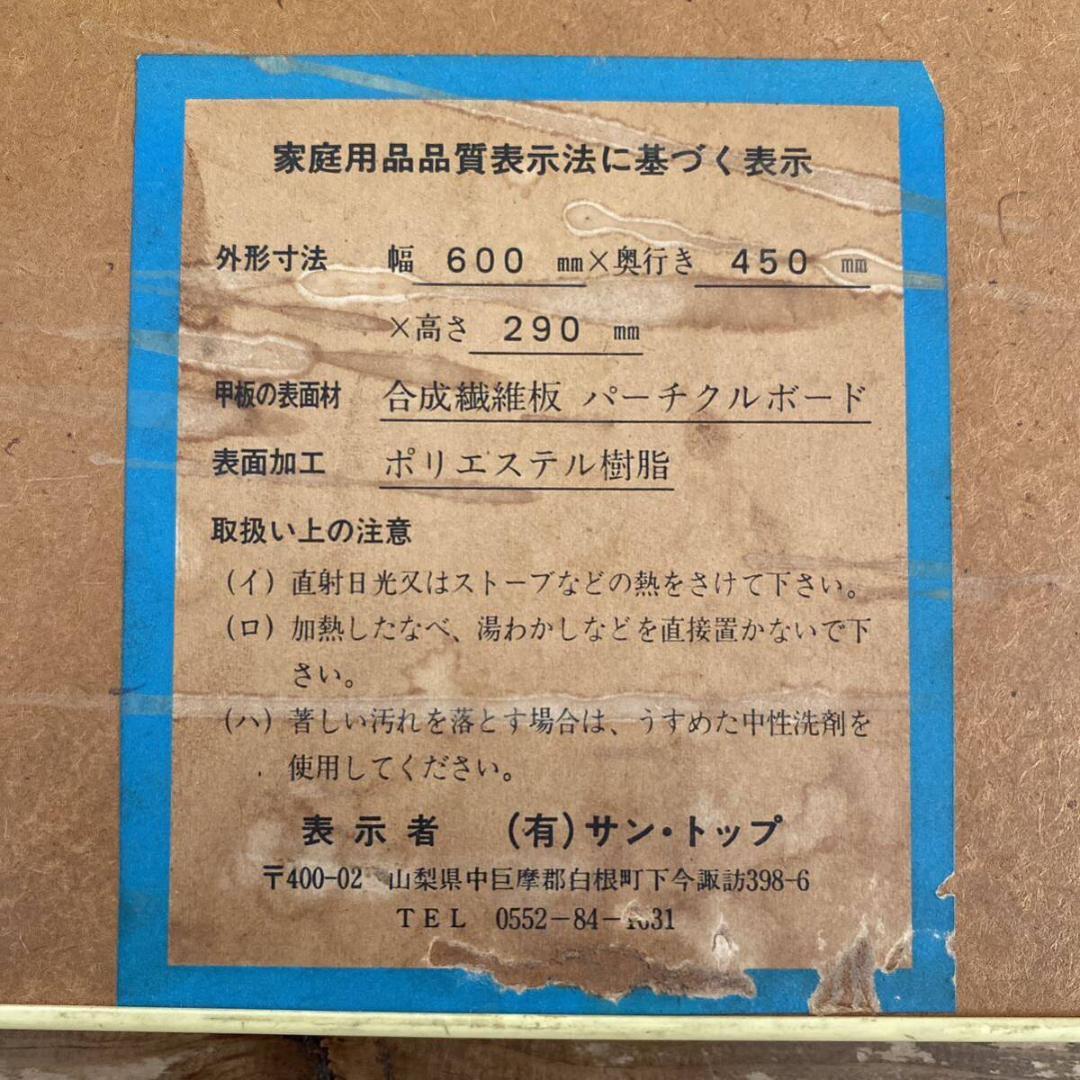 家庭用品品質表示法に基づく表示
外形寸法 幅 600 ㎜×奥行き 450 ㎜
×高さ 290 ㎜
甲板の表面材 合成繊維板 パーチクルボード
表面加工 ポリエステル樹脂
取扱い上の注意
(イ) 直射日光又はストーブなどの熱をさけて下さい。
(ロ) 加熱したなべ、湯わかしなどを直接置かないで下
さい。
(ハ) 著しい汚れを落とす場合は、うすめた中性洗剤を
使用してください。
表示者 (有)サン・トップ
〒400-02 山梨県中巨摩郡白根町下今諏訪398-6
TEL 0552-84-